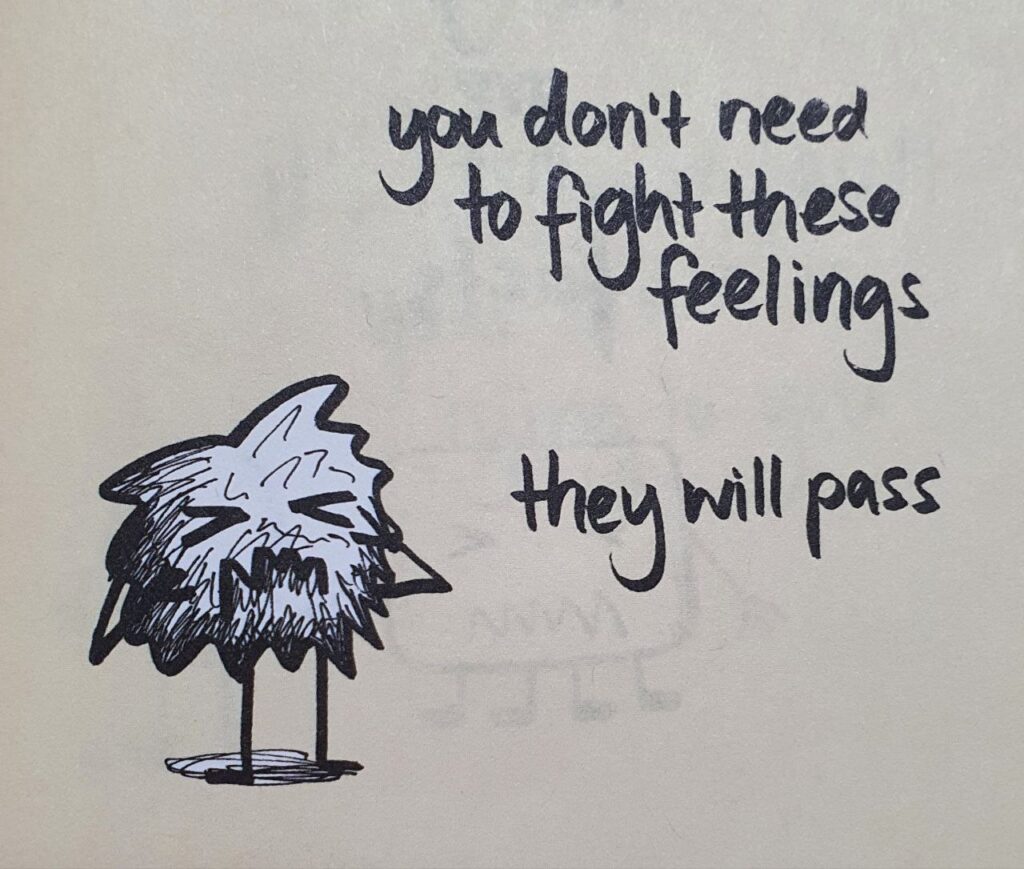 you don't need
to fight these
feelings
they will pass